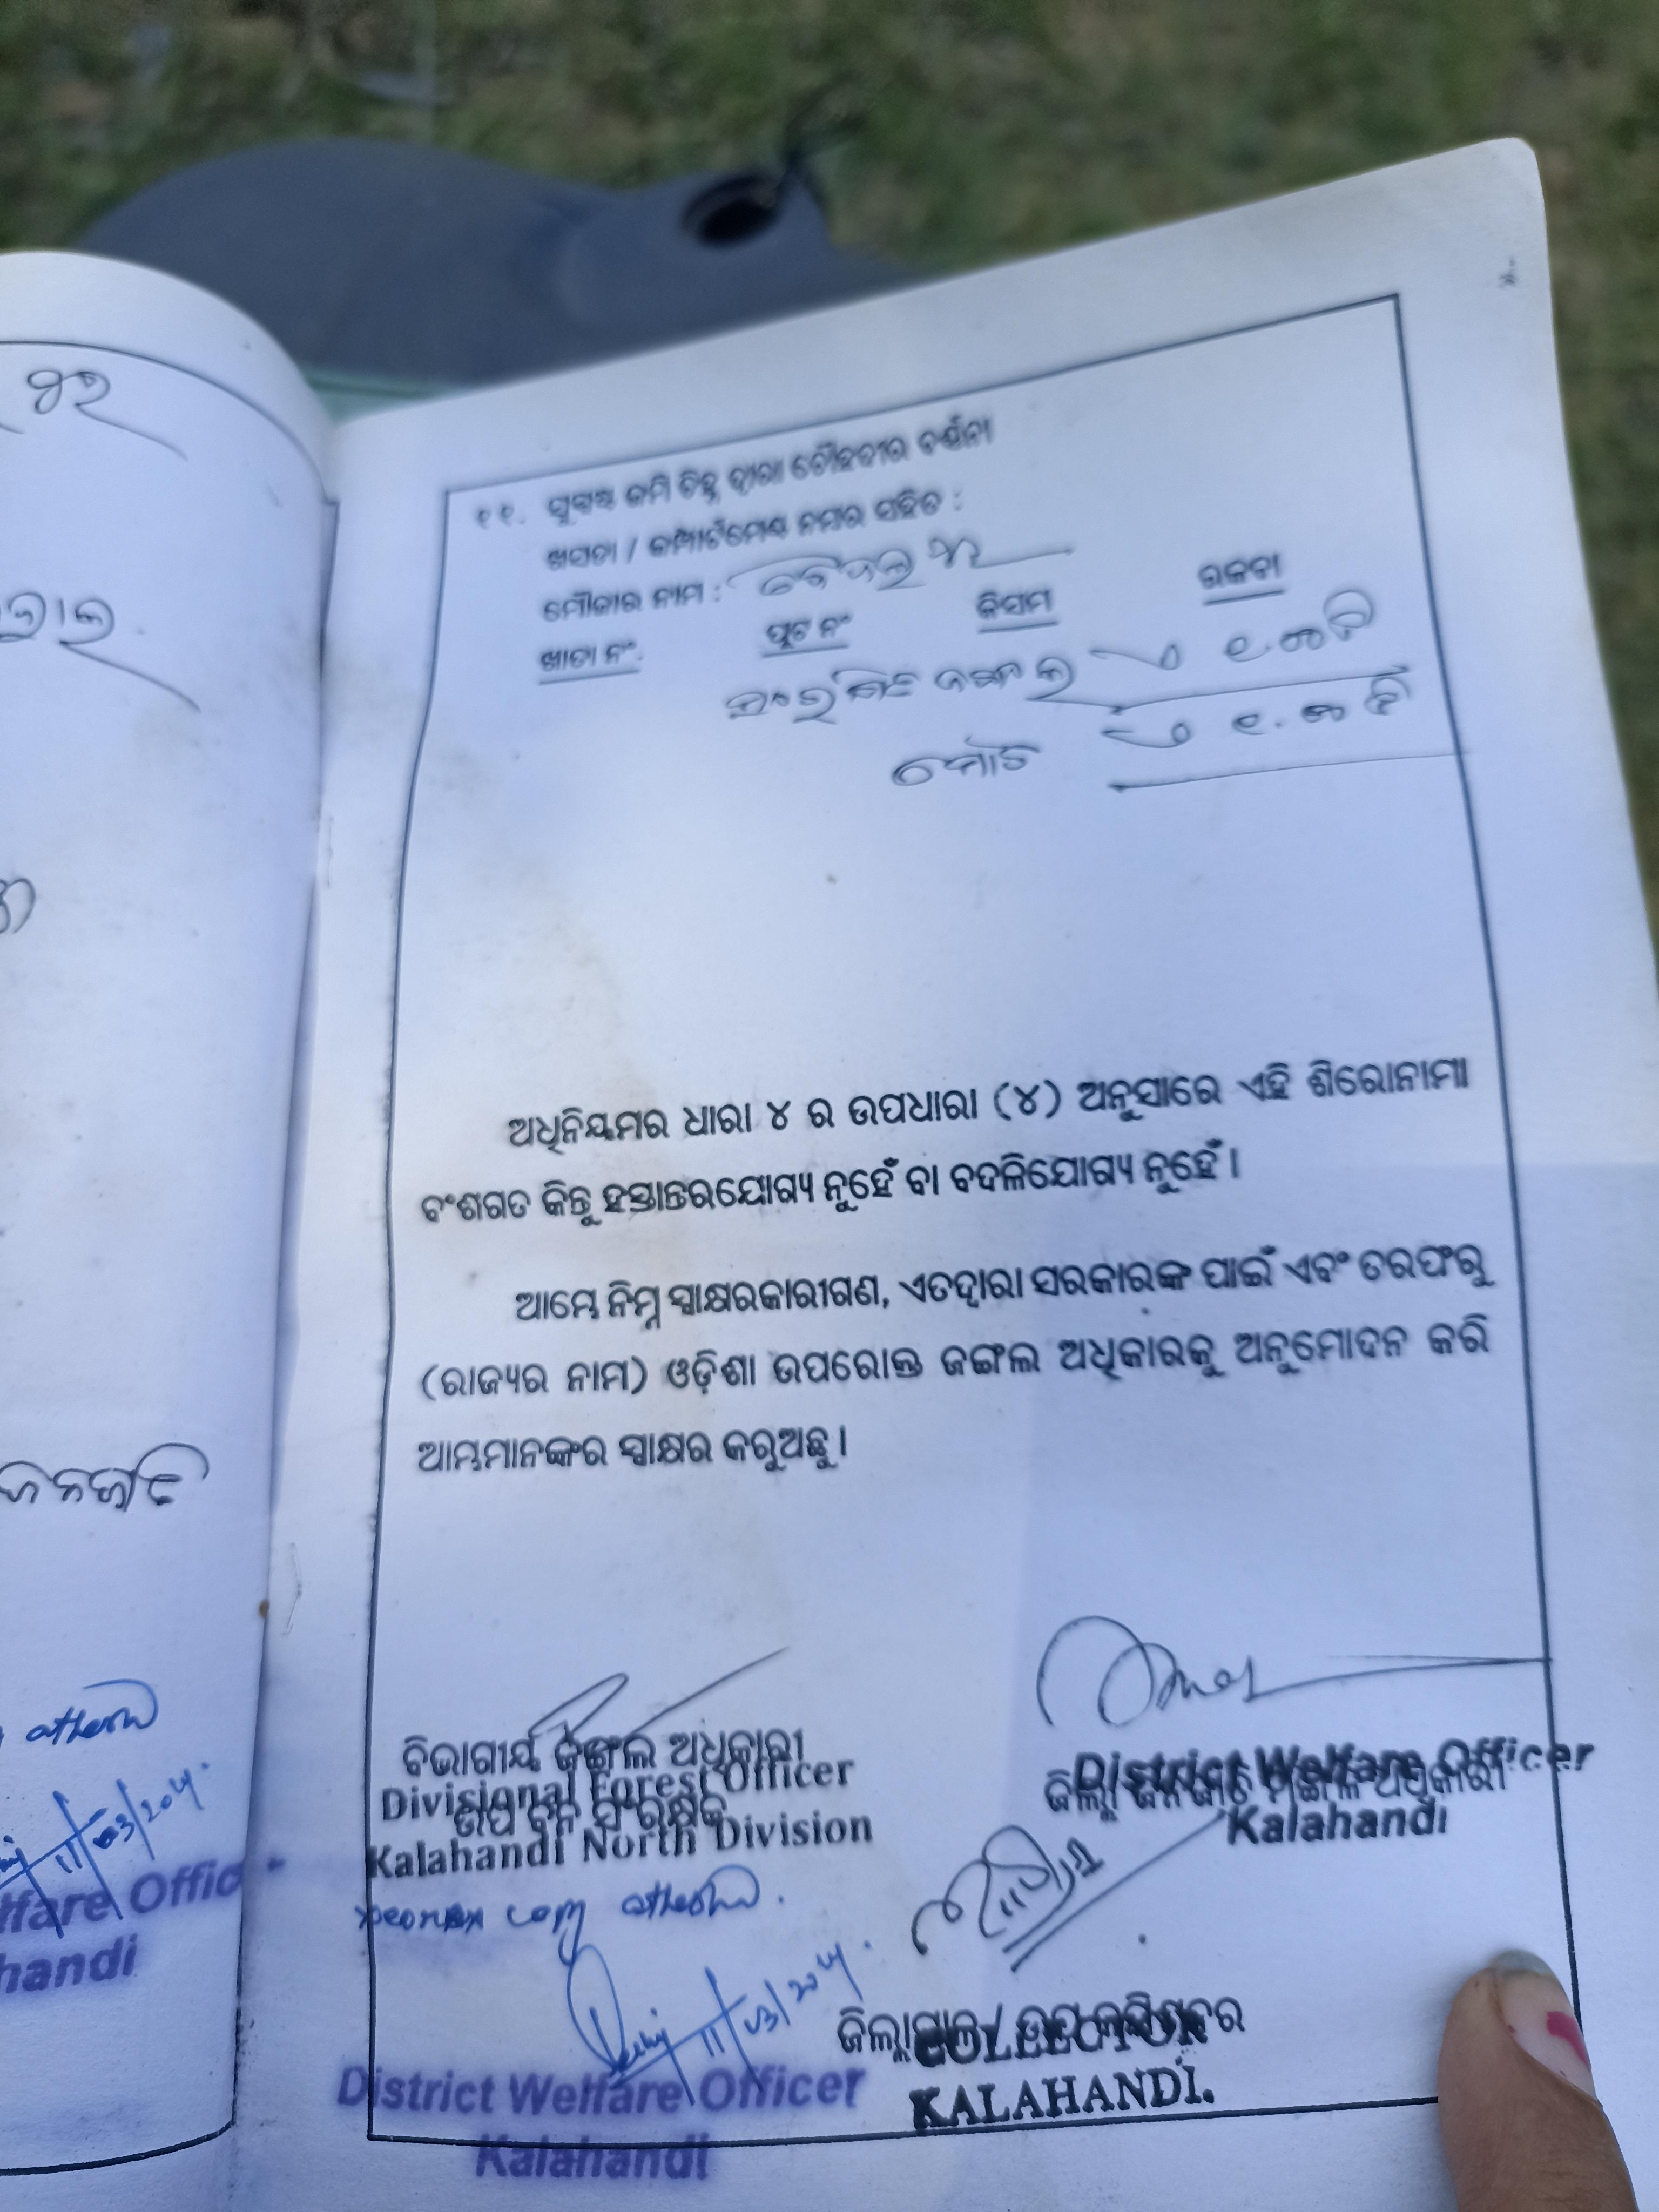 ୪୨
୧୧. ସୁସ୍ପଷ୍ଟ ଜମି ଚିହ୍ନ ଦ୍ୱାରା ଚୌହଦୀର ବର୍ଣ୍ଣନା
ଖସଡା / କମ୍ପାର୍ଟମେଣ୍ଟ ନମ୍ବର ସହିତ :
ମୌଜାର ନାମ :
ଖାତା ନଂ. ପ୍ଲଟ ନଂ କିସମ ରକବା
ସଂରକ୍ଷିତ ଜଙ୍ଗଲ
ମୋଟ
ଅଧିନିୟମର ଧାରା ୪ ର ଉପଧାରା (୪) ଅନୁସାରେ ଏହି ଶିରୋନାମା
ବଂଶଗତ କିନ୍ତୁ ହସ୍ତାନ୍ତରଯୋଗ୍ୟ ନୁହେଁ ବା ବଦଳିଯୋଗ୍ୟ ନୁହେଁ ।
ଆମ୍ଭେ ନିମ୍ନ ସ୍ୱାକ୍ଷରକାରୀଗଣ, ଏତଦ୍ୱାରା ସରକାରଙ୍କ ପାଇଁ ଏବଂ ତରଫରୁ
(ରାଜ୍ୟର ନାମ) ଓଡ଼ିଶା ଉପରୋକ୍ତ ଜଙ୍ଗଲ ଅଧିକାରକୁ ଅନୁମୋଦନ କରି
ଆମ୍ଭମାନଙ୍କର ସ୍ୱାକ୍ଷର କରୁଅଛୁ ।
ଜନଜାତି
ବିଭାଗୀୟ ଜଙ୍ଗଲ ଅଧିକାରୀ
Divisional Forest Officer
ଉପ ବନ ସଂରକ୍ଷକ
Kalahandi North Division
District Welfare Officer
ଜିଲ୍ଲା ଜନଜାତି ମଙ୍ଗଳ ଅଧିକାରୀ
Kalahandi
copy attested.
ଜିଲ୍ଲାପାଳ / ଉପ କମିଶନର
COLLECTOR
KALAHANDI.
District Welfare Officer
Kalahandi